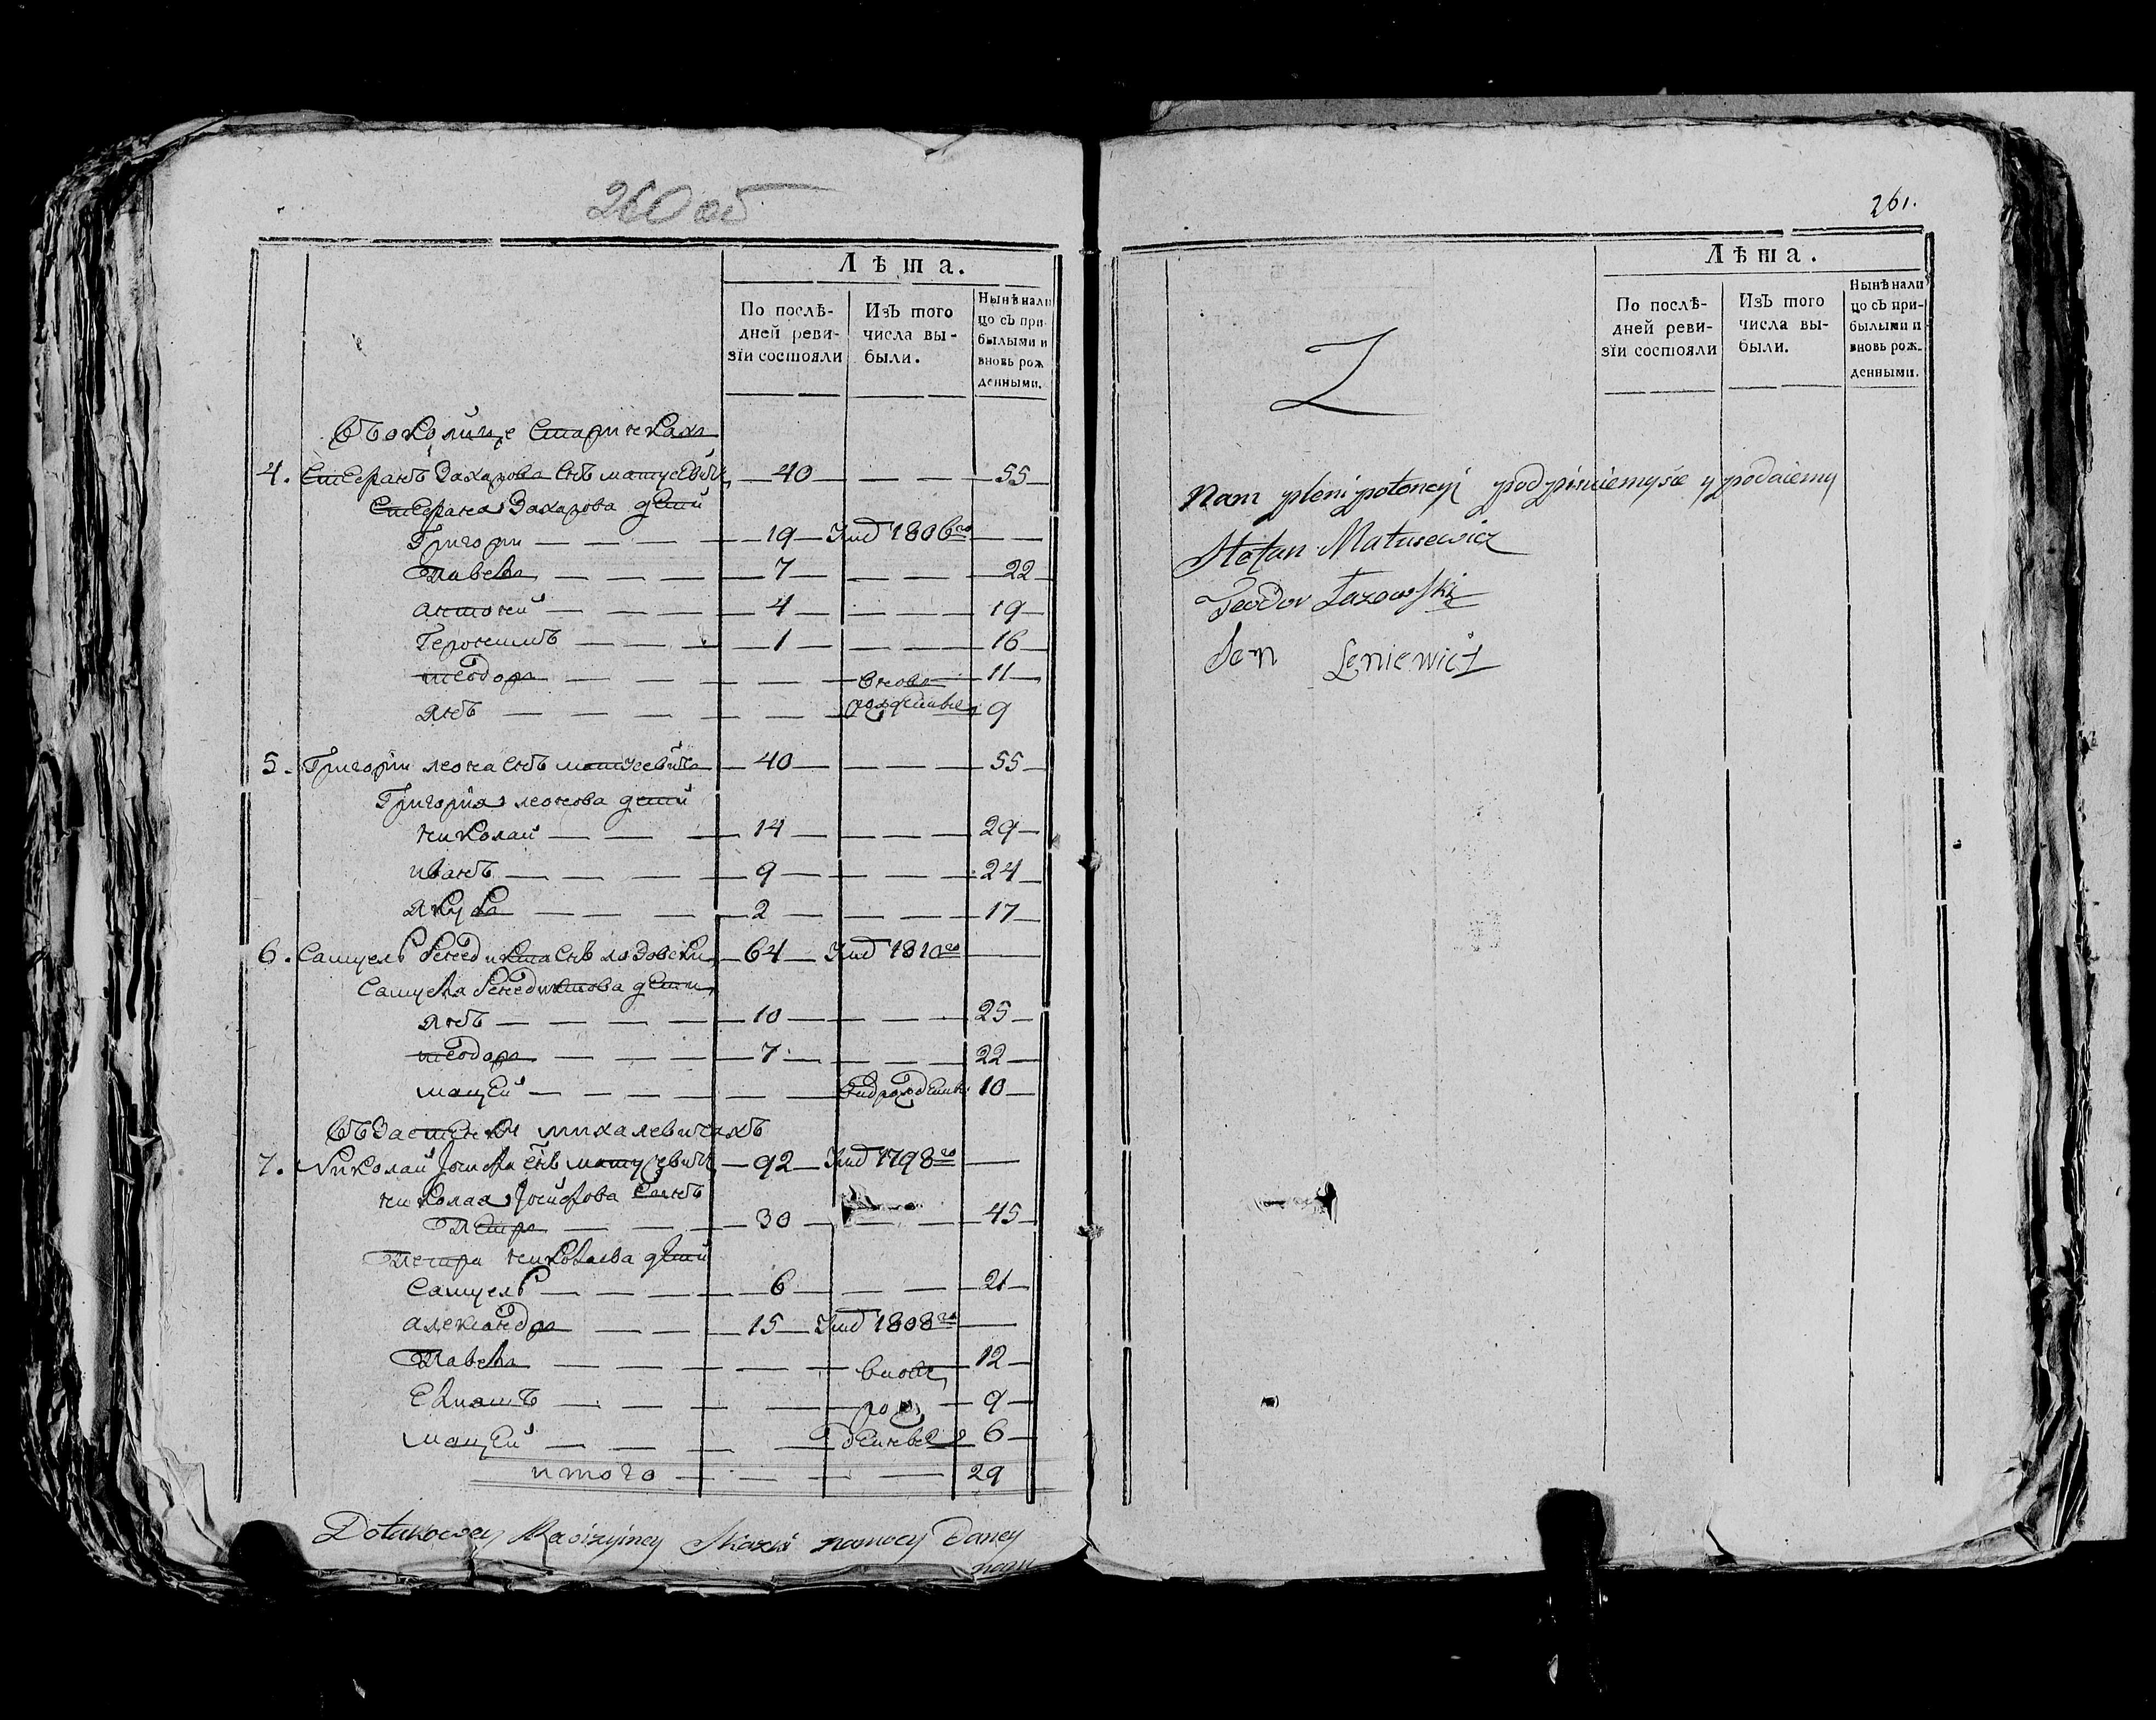 260 об
Лѣта.
По послѣ-
дней реви-
зїи состояли
Изъ того
числа вы-
были.
Нынѣ нали
цо съ при-
былыми и
вновь рож
денными.
Въ околице
4. Стефанъ Захарова снъ матусевичъ — 40 — — — — 55
Стефана Захарова дети
Григори — — — — 19 — 1806го — —
Павелъ — — — — 7 — — — — 22
антоней — — — — 4 — — — — 19
Героними — — — 1 — — — — 16
теодоръ — — — — — вновь — 11
Янъ — — — — — рожденные 9
5. Григори леона снъ матусевичъ — 40 — — — — 55
Григория леонова дети
николай — — — 14 — — — — 29
иванъ — — — — 9 — — — — 24
Якубъ — — — 2 — — — — 17
6. Самуель бенедикта снъ лазовски — 64 — 1810го —
Самуеля бенедиктова дети
Янъ — — — — 10 — — — — 25
теодоръ — — — 7 — — — — 22
мацей — — — — — 10
Въ застенки михалевичахъ
7. Николай снъ матусевичъ — 92 — 1798го —
николая Иосифова сынъ
Петръ — — — 30 — — — 45
Петра николаева дети
Самуель — — — 6 — — — 21
александръ — — — 15 — 1808го —
Павелъ — — — — — вновь 12
— — — — — ро — 9
мацей — — — — денные 6
итого — — — — 29
Dotakowey Rewizyiney Skazki namocy Daney
nam
261.
Лѣта.
По послѣ-
дней реви-
зїи состояли
Изъ того
числа вы-
были.
Нынѣ нали
цо съ при-
былыми и
вновь рож-
денными.
Nam plenipotencyi podpisuiemysie y podaiemy
Stefan Matusewicz
Teodor Łazowski
Jan Leniewicz